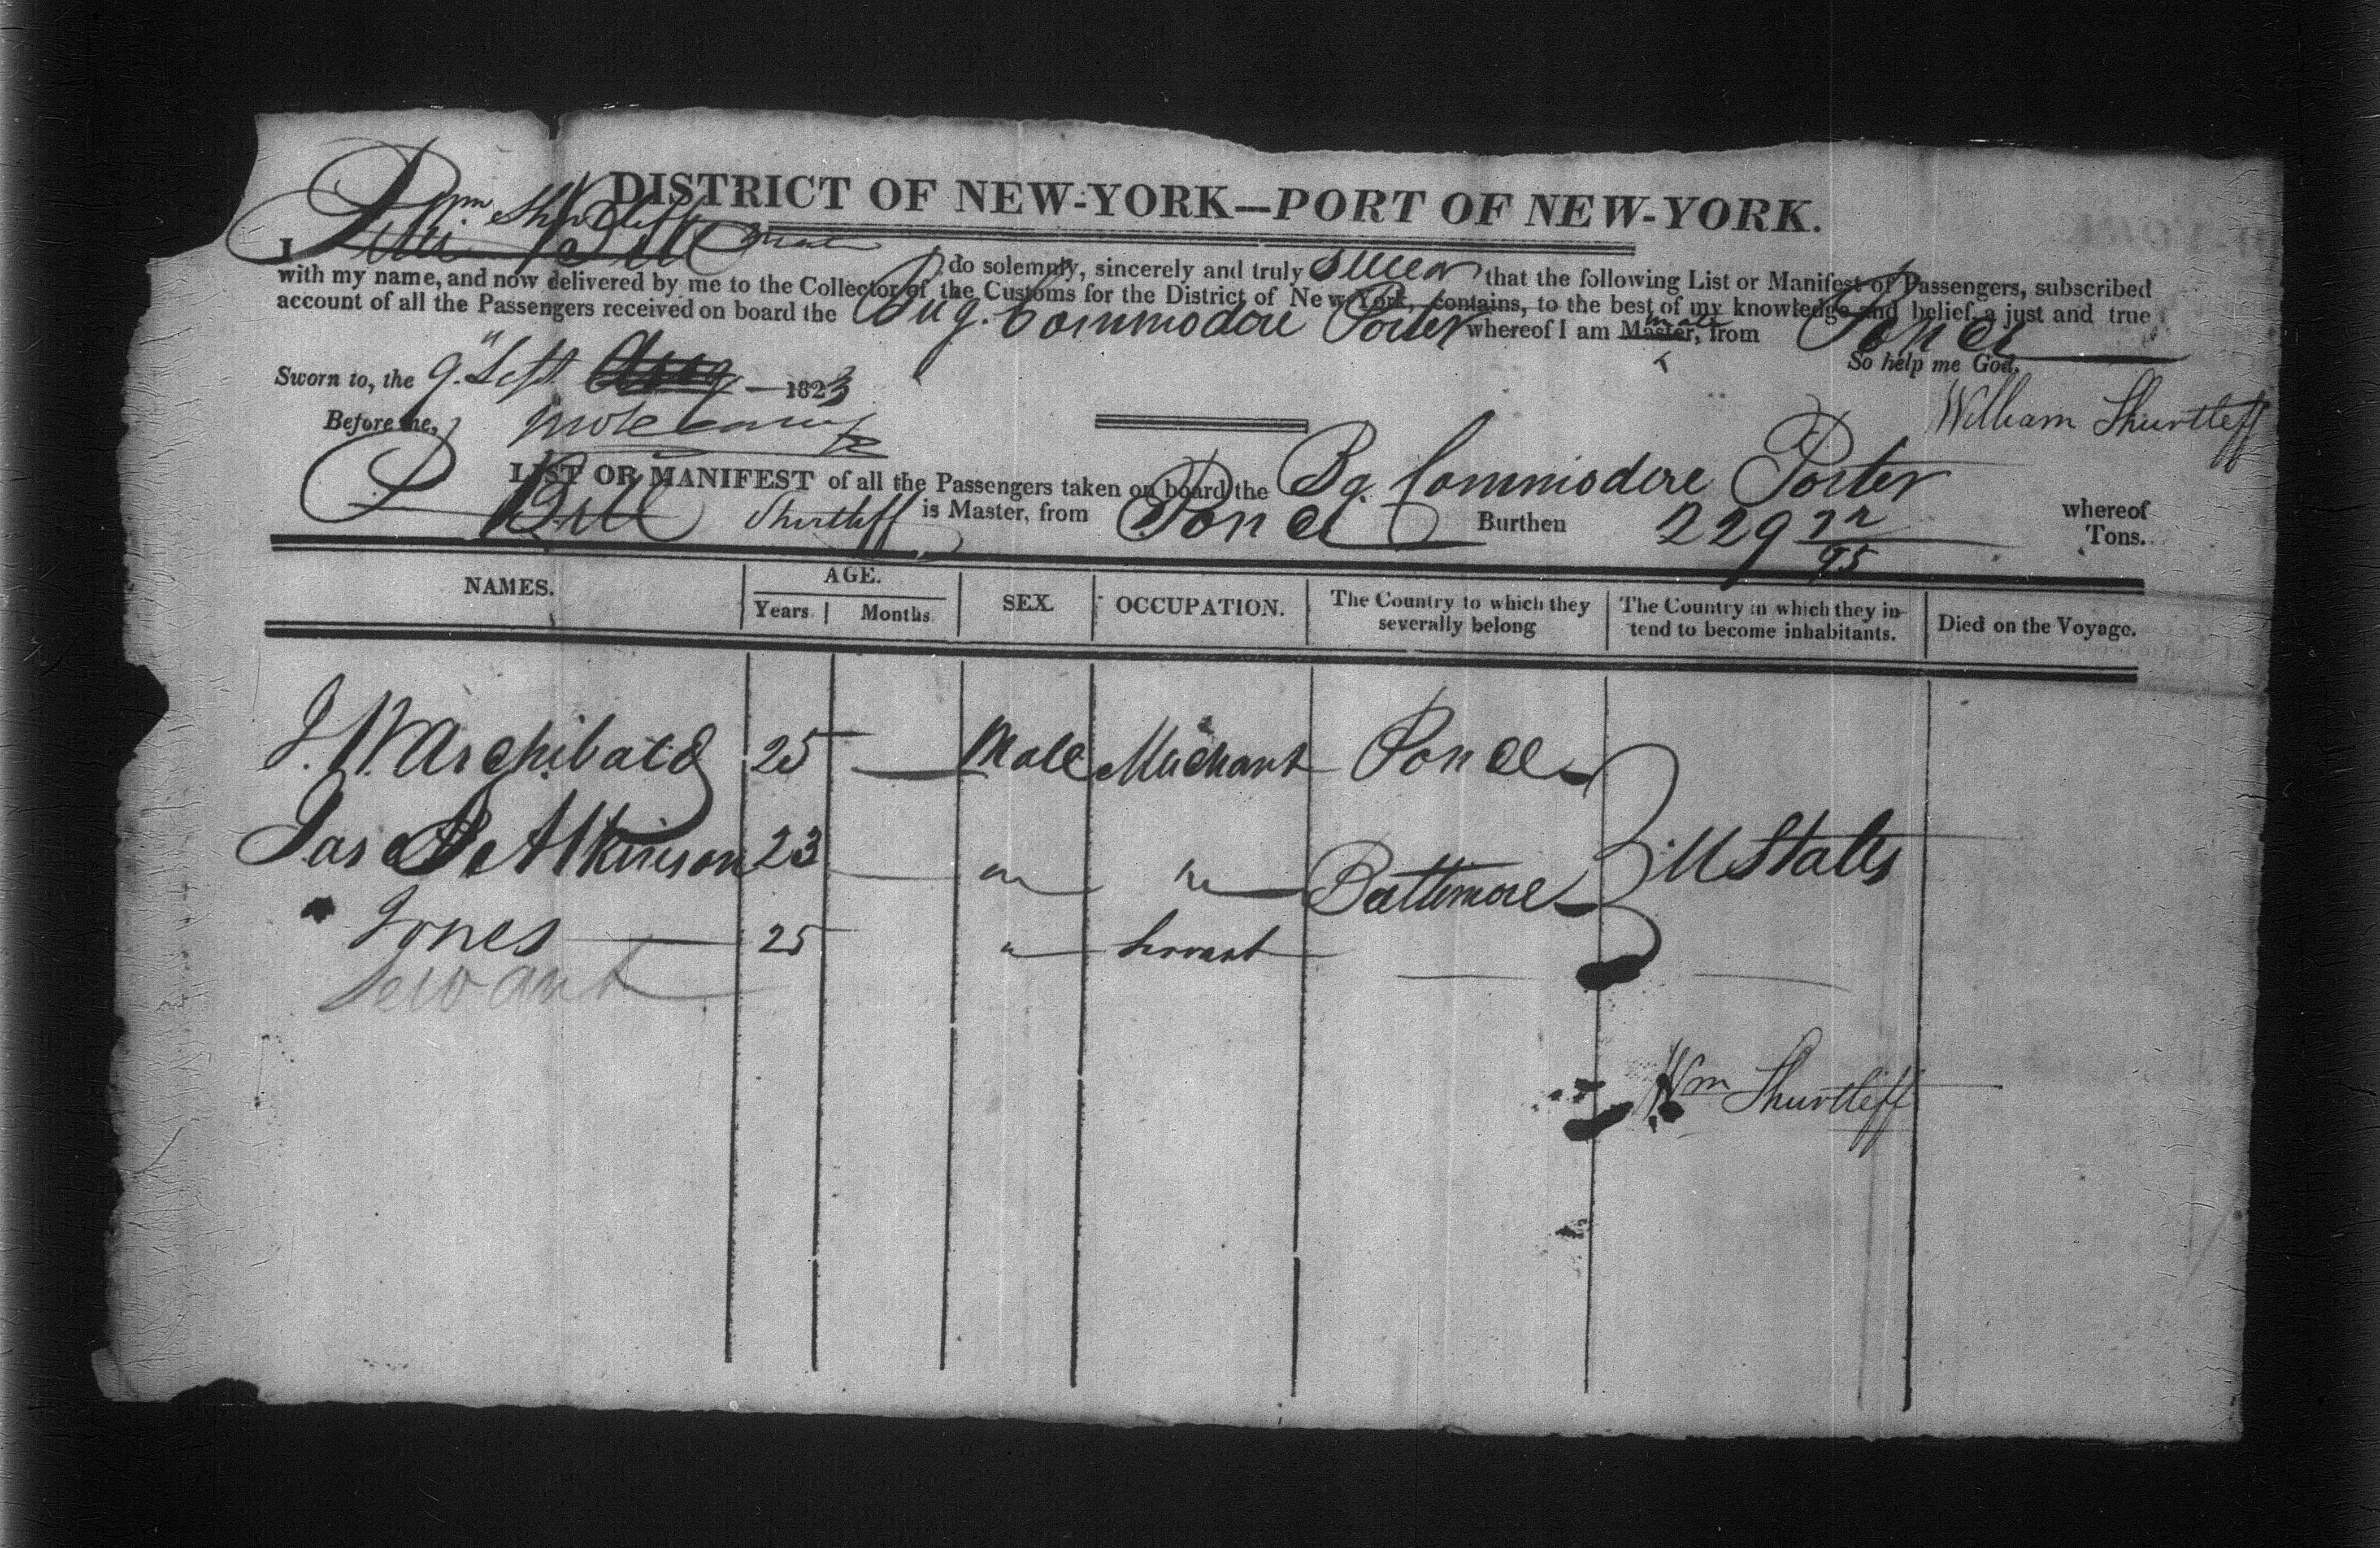 DISTRICT OF NEW-YORK—PORT OF NEW-YORK.
Wm Shurtleff mate
I Bill do solemnly, sincerely and truly swear that the following List or Manifest of Passengers, subscribed
with my name, and now delivered by me to the Collector of the Customs for the District of New York, contains, to the best of my knowledge and belief, a just and true
account of all the Passengers received on board the Brig. Commodore Porter whereof I am Master, mate from Ponce
So help me God.
Sworn to, the 9" Sept Aug 1823
William Shurtleff
Before me,
LIST OR MANIFEST of all the Passengers taken on board the Bg. Commodore Porter whereof
P Bill Shurtleff is Master, from Ponce Burthen 229 72/95 Tons.
NAMES. AGE. SEX. OCCUPATION. The Country to which they severally belong The Country in which they intend to become inhabitants. Died on the Voyage.
Years. Months.
J. W. Archibald 25 — Male Merchant Ponce
Jas B Atkinson 23 — " " Baltimore U States
Jones 25 " Servant
Servant
Wm Shurtleff